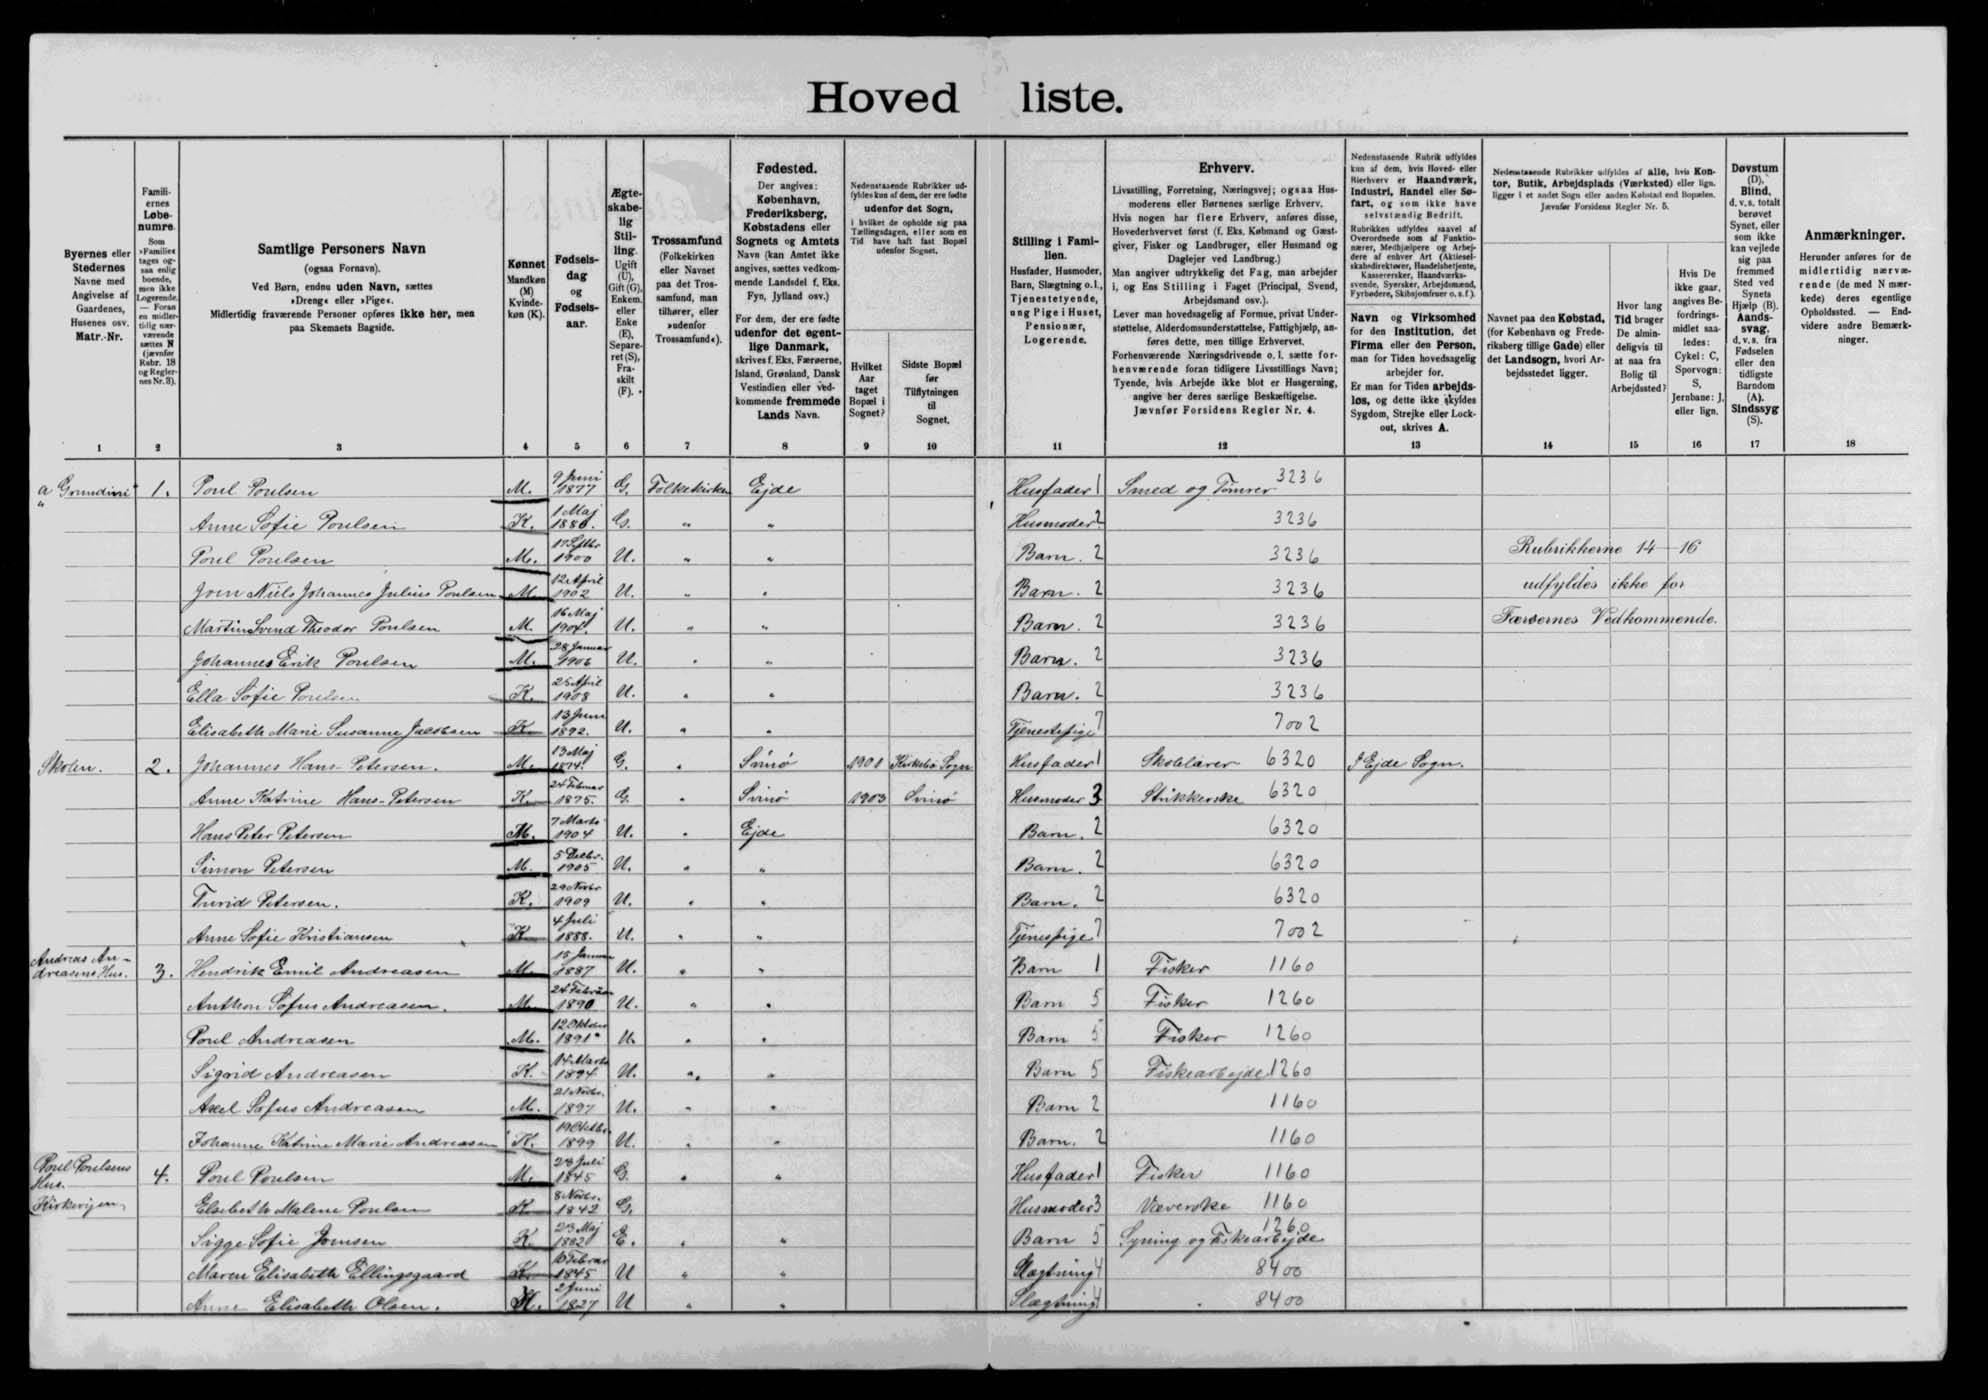 Hoved liste.
Byernes eller Stedernes Navne med Angivelse af Gaardenes, Husenes osv. Matr.-Nr.
Familiernes Løbenumre.
Som »Familie« tages ogsaa enlig boende, men ikke Logerende. — Foran en midlertidig nærværende sættes N (jævnfør Rubr. 18 og Regler nes Nr. 3).
Samtlige Personers Navn
(ogsaa Fornavn).
Ved Børn, endnu uden Navn, sættes
»Dreng« eller »Pige«.
Midlertidig fraværende Personer opføres ikke her, men
paa Skemaets Bagside.
Kønnet
Mandkøn (M) Kvindekøn (K).
Fødselsdag og Fødselsaar.
Ægteskabelig Stilling.
Ugift (U), Gift (G), Enkem. eller Enke (E), Separeret (S), Fraskilt (F).
Trossamfund
(Folkekirken eller Navnet paa det Trossamfund, man tilhører, eller »udenfor Trossamfund«).
Fødested.
Der angives: København, Frederiksberg, Købstadens eller Sognets og Amtets Navn (kan Amtet ikke angives, sættes vedkommende Landsdel f. Eks. Fyn, Jylland osv.)
For dem, der ere fødte udenfor det egentlige Danmark, skrives f. Eks. Færøerne, Island, Grønland, Dansk Vestindien eller vedkommende fremmede Lands Navn.
Nedenstaaende Rubrikker udfyldes kun af dem, der ere fødte udenfor det Sogn, i hvilket de opholde sig paa Tællingsdagen, eller som en Tid have haft fast Bopæl udenfor Sognet.
Hvilket Aar taget Bopæl i Sognet?
Sidste Bopæl før Tilflytningen til Sognet.
Stilling i Familien.
Husfader, Husmoder, Barn, Slægtning o. l., Tjenestetyende, ung Pige i Huset, Pensionær, Logerende.
Erhverv.
Livsstilling, Forretning, Næringsvej; ogsaa Husmoderens eller Børnenes særlige Erhverv.
Hvis nogen har flere Erhverv, anføres disse, Hovederhvervet først (f. Eks. Købmand og Gæstgiver, Fisker og Landbruger, eller Husmand og Daglejer ved Landbrug.)
Man angiver udtrykkelig det Fag, man arbejder i, og Ens Stilling i Faget (Principal, Svend, Arbejdsmand osv.).
Lever man hovedsagelig af Formue, privat Understøttelse, Alderdomsunderstøttelse, Fattighjælp, anføres dette, men tillige Erhvervet.
Forhenværende Næringsdrivende o. l. sætte forhenværende foran tidligere Livsstillings Navn; Tyende, hvis Arbejde ikke blot er Husgerning, angive her deres særlige Beskæftigelse.
Jævnfør Forsidens Regler Nr. 4.
Nedenstaaende Rubrik udfyldes kun af dem, hvis Hoved- eller Bierhverv er Haandværk, Industri, Handel eller Søfart, og som ikke have selvstændig Bedrift.
Rubrikken udfyldes saavel af Overordnede som af Funktionærer, Medhjælpere og Arbejdere af enhver Art (Aktieselskabsdirektører, Handelsbetjente, Kasserersker, Haandværkssvende, Syersker, Arbejdsmænd, Fyrbødere, Skibsjomfruer o. s. f.).
Navn og Virksomhed for den Institution, det Firma eller den Person, man for Tiden hovedsagelig arbejder for.
Er man for Tiden arbejdsløs, og dette ikke skyldes Sygdom, Strejke eller Lockout, skrives A.
Nedenstaaende Rubrikker udfyldes af alle, hvis Kontor, Butik, Arbejdsplads (Værksted) eller lign. ligger i et andet Sogn eller anden Købstad end Bopælen.
Jævnfør Forsidens Regler Nr. 5.
Navnet paa den Købstad, (for København og Frederiksberg tillige Gade) eller det Landsogn, hvori Arbejdsstedet ligger.
Hvor lang Tid bruger De almindeligvis til at naa fra Bolig til Arbejdssted?
Hvis De ikke gaar, angives Befordringsmidlet saaledes: Cykel: C, Sporvogn: S, Jernbane: J, eller lign.
Døvstum (D), Blind, d. v. s. totalt berøvet Synet, eller som ikke kan vejlede sig paa fremmed Sted ved Synets Hjælp (B). Aandssvag, d. v. s. fra Fødselen eller den tidligste Barndom (A). Sindssyg (S).
Anmærkninger.
Herunder anføres for de midlertidig nærværende (de med N mærkede) deres egentlige Opholdssted. — Endvidere andre Bemærkninger.
1 2 3 4 5 6 7 8 9 10 11 12 13 14 15 16 17 18
1. Poul Poulsen M. 9 Juni 1877 G. Folkekirken Ejde Husfader 1 Smed og Tømrer 3236
Anne Sofie Poulsen K. 1 Maj 1880. G. " " Husmoder 2 3236
Poul Poulsen M. 17 Septbr 1900 U. " " Barn. 2 3236 Rubrikkerne 14-16
Joen Niels Johannes Julius Poulsen M. 12 April 1902 U. " " Barn. 2 3236 udfyldes ikke for
Martin Svend Theodor Poulsen M. 16 Maj 1904. U. " " Barn. 2 3236 Færøernes Vedkommende.
Johannes Erik Poulsen M. 28 Januar 1906 U. " " Barn. 2 3236
Ella Sofie Poulsen K. 25 April 1908 U. " " Barn. 2 3236
Elisabeth Marie Susanne Jacobsen K. 13 Juni 1892. U. " " Tjenestepige 7 7002
Skolen. 2. Johannes Hans-Petersen. M. 13 Maj 1874. G. " Svinø 1901 Kirkebø Sogn Husfader 1 Skolelærer 6320 I Ejde Sogn.
Anne Katrine Hans-Petersen K. 24 Februar 1875. G. " Svinø 1903 Svinø Husmoder 3 Strikkerske 6320
Hans Peter Petersen M. 7 Marts 1904 U. " Ejde Barn. 2 6320
Simon Petersen M. 5 Decbr. 1905 U. " " Barn. 2 6320
Turid Petersen. K. 29 Novbr 1909 U. " " Barn. 2 6320
Anne Sofie Kristiansen K 4 Juli 1888. U. " " Tjenespige 7 7002
Andreas Andreasens Hus. 3. Hendrik Emil Andreasen M. 15 Januar 1887 U. " " Barn 1 Fisker 1160
Anthon Sofus Andreasen. M. 24 Februar 1890 U. " " Barn 5 Fisker 1260
Poul Andreasen M. 12 Oktober 1891 U. " " Barn 5 Fisker 1260
Sigrid Andreasen K. 14 Marts 1894 U. " " Barn 5 Fiskearbejde 1260
Axel Sofus Andreasen M. 21 Novbr. 1897 U. " " Barn 2 1160
Johanne Katrine Marie Andreasen K. 19 Oktbr. 1899 U. " " Barn. 2 1160
Poul Poulsens Hus. 4. Poul Poulsen M. 28 Juli 1845 G. " " Husfader 1 Fisker 1160
Elsebeth Malene Poulsen K 8 Novbr. 1842 G. Husmoder 3 Væverske 1160
Sigge Sofie Joensen K. 23 Maj 1882 E. " " Barn 5 Syning og Fiskearbejde 1260
Maren Elisabeth Ellingsgaard K. 10 Februar 1845 U " " Slægtning 4 8400
Anne Elisabeth Olsen. K. 2 Juni 1827 U " " Slægtning 4 8400